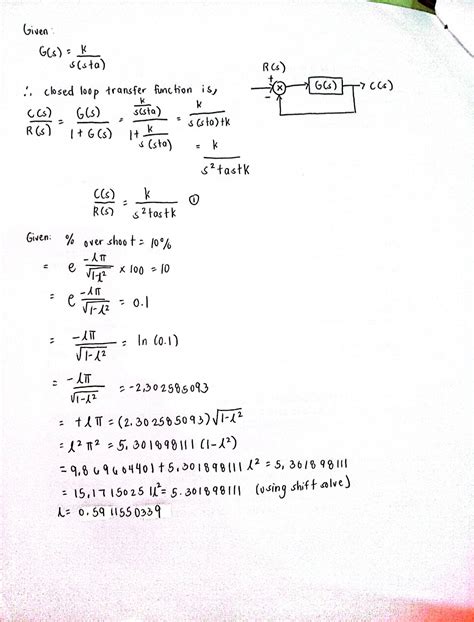 Given:
G(s) = k / s(s+a)
R(s)
+
-
G(s)
C(s)
∴ closed loop transfer function is,
C(s)/R(s) = G(s) / 1+G(s) = k/s(s+a) / 1+ k/s(s+a) = k / s(s+a)+k
= k / s²+as+k
C(s)/R(s) = k / s²+as+k ①
Given: % overshoot = 10%
= e -ζπ/√1-ζ² x 100 = 10
= e -ζπ/√1-ζ² = 0.1
= -ζπ/√1-ζ² = ln (0.1)
= -ζπ/√1-ζ² = -2,302585093
= +ζπ = (2.302585093)√1-ζ²
= ζ²π² = 5,301898111 (1-ζ²)
= 9,869604401 + 5,301898111 ζ² = 5,301898111
= 15,17150251 ζ² = 5.301898111 (using shift solve)
ζ = 0.5911550339